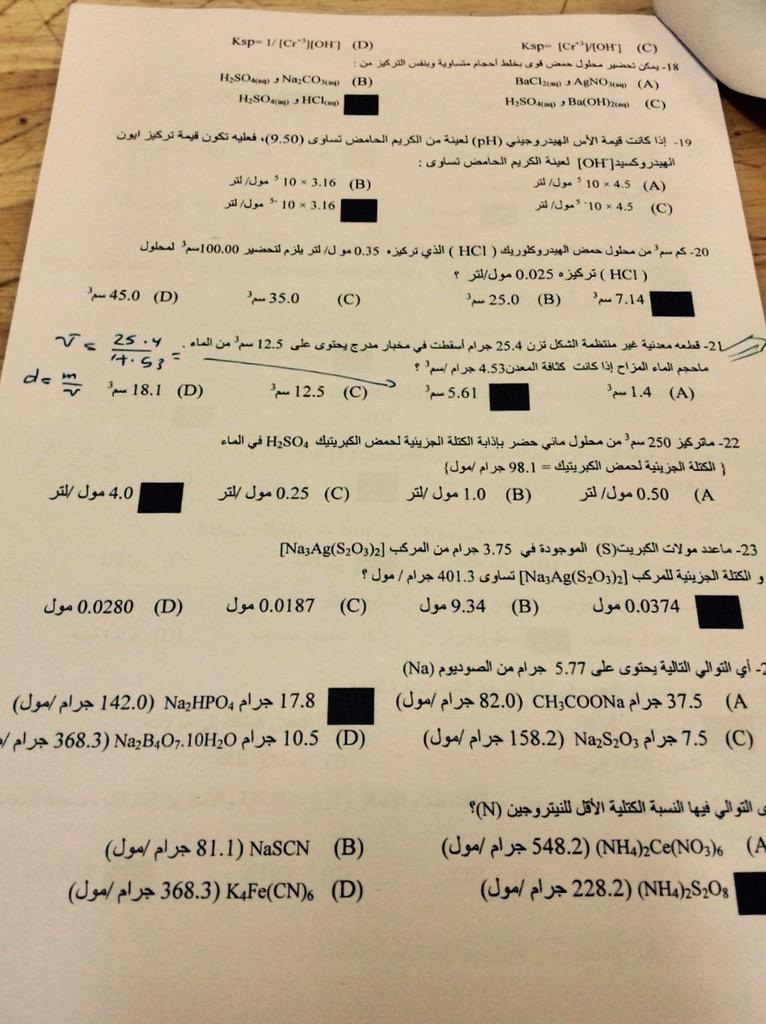 Ksp= [Cr⁺³]/[OHˉ] (C) Ksp= 1/ [Cr⁺³][OHˉ] (D)
18- يمكن تحضير محلول حمض قوى بخلط أحجام متساوية وبنفس التركيز من :
(A) AgNO3(aq) و BaCl2(aq) (B) Na2CO3(aq) و H2SO4(aq)
(C) Ba(OH)2(aq) و H2SO4(aq) HCl(aq) و H2SO4(aq)
19- إذا كانت قيمة الأس الهيدروجيني (pH) لعينة من الكريم الحامض تساوى (9.50)، فعليه تكون قيمة تركيز ايون
الهيدروكسيد[OHˉ] لعينة الكريم الحامض تساوى :
(A) 4.5 × 10 ⁵ مول/ لتر (B) 3.16 × 10 ⁵ مول/ لتر
(C) 4.5 × 10 ⁻⁵ مول/ لتر 3.16 × 10 ⁻⁵ مول/ لتر
20- كم سم³ من محلول حمض الهيدروكلوريك ( HCl ) الذي تركيزه 0.35 مو ل/ لتر يلزم لتحضير 100.00سم³ لمحلول
( HCl ) تركيزه 0.025 مول/لتر ؟
7.14 سم³ (B) 25.0 سم³ (C) 35.0 سم³ (D) 45.0 سم³
21- قطعه معدنية غير منتظمة الشكل تزن 25.4 جرام أسقطت في مخبار مدرج يحتوى على 12.5 سم³ من الماء .
v = 25.4 / 4.53 =
ماحجم الماء المزاح إذا كانت كثافة المعدن4.53 جرام /سم³ ؟
d = m / v
(A) 1.4 سم³ 5.61 سم³ (C) 12.5 سم³ (D) 18.1 سم³
22- ماتركيز 250 سم³ من محلول مائي حضر بإذابة الكتلة الجزيئية لحمض الكبريتيك H2SO4 في الماء
{ الكتلة الجزيئية لحمض الكبريتيك = 98.1 جرام /مول}
A) 0.50 مول/ لتر (B) 1.0 مول /لتر (C) 0.25 مول /لتر 4.0 مول /لتر
23- ماعدد مولات الكبريت(S) الموجودة في 3.75 جرام من المركب [Na3Ag(S2O3)2]
و الكتلة الجزيئية للمركب [Na3Ag(S2O3)2] تساوى 401.3 جرام / مول ؟
0.0374 مول (B) 9.34 مول (C) 0.0187 مول (D) 0.0280 مول
- أي التوالي التالية يحتوى على 5.77 جرام من الصوديوم (Na)
A) 37.5 جرام CH3COONa (82.0 جرام /مول) 17.8 جرام Na2HPO4 (142.0 جرام /مول)
(C) 7.5 جرام Na2S2O3 (158.2 جرام /مول) (D) 10.5 جرام Na2B4O7.10H2O (368.3 جرام /
التوالي فيها النسبة الكتلية الأقل للنيتروجين (N)؟
(A (NH4)2Ce(NO3)6 (548.2 جرام /مول) (B) NaSCN (81.1 جرام /مول)
(NH4)2S2O8 (228.2 جرام /مول) (D) K4Fe(CN)6 (368.3 جرام /مول)